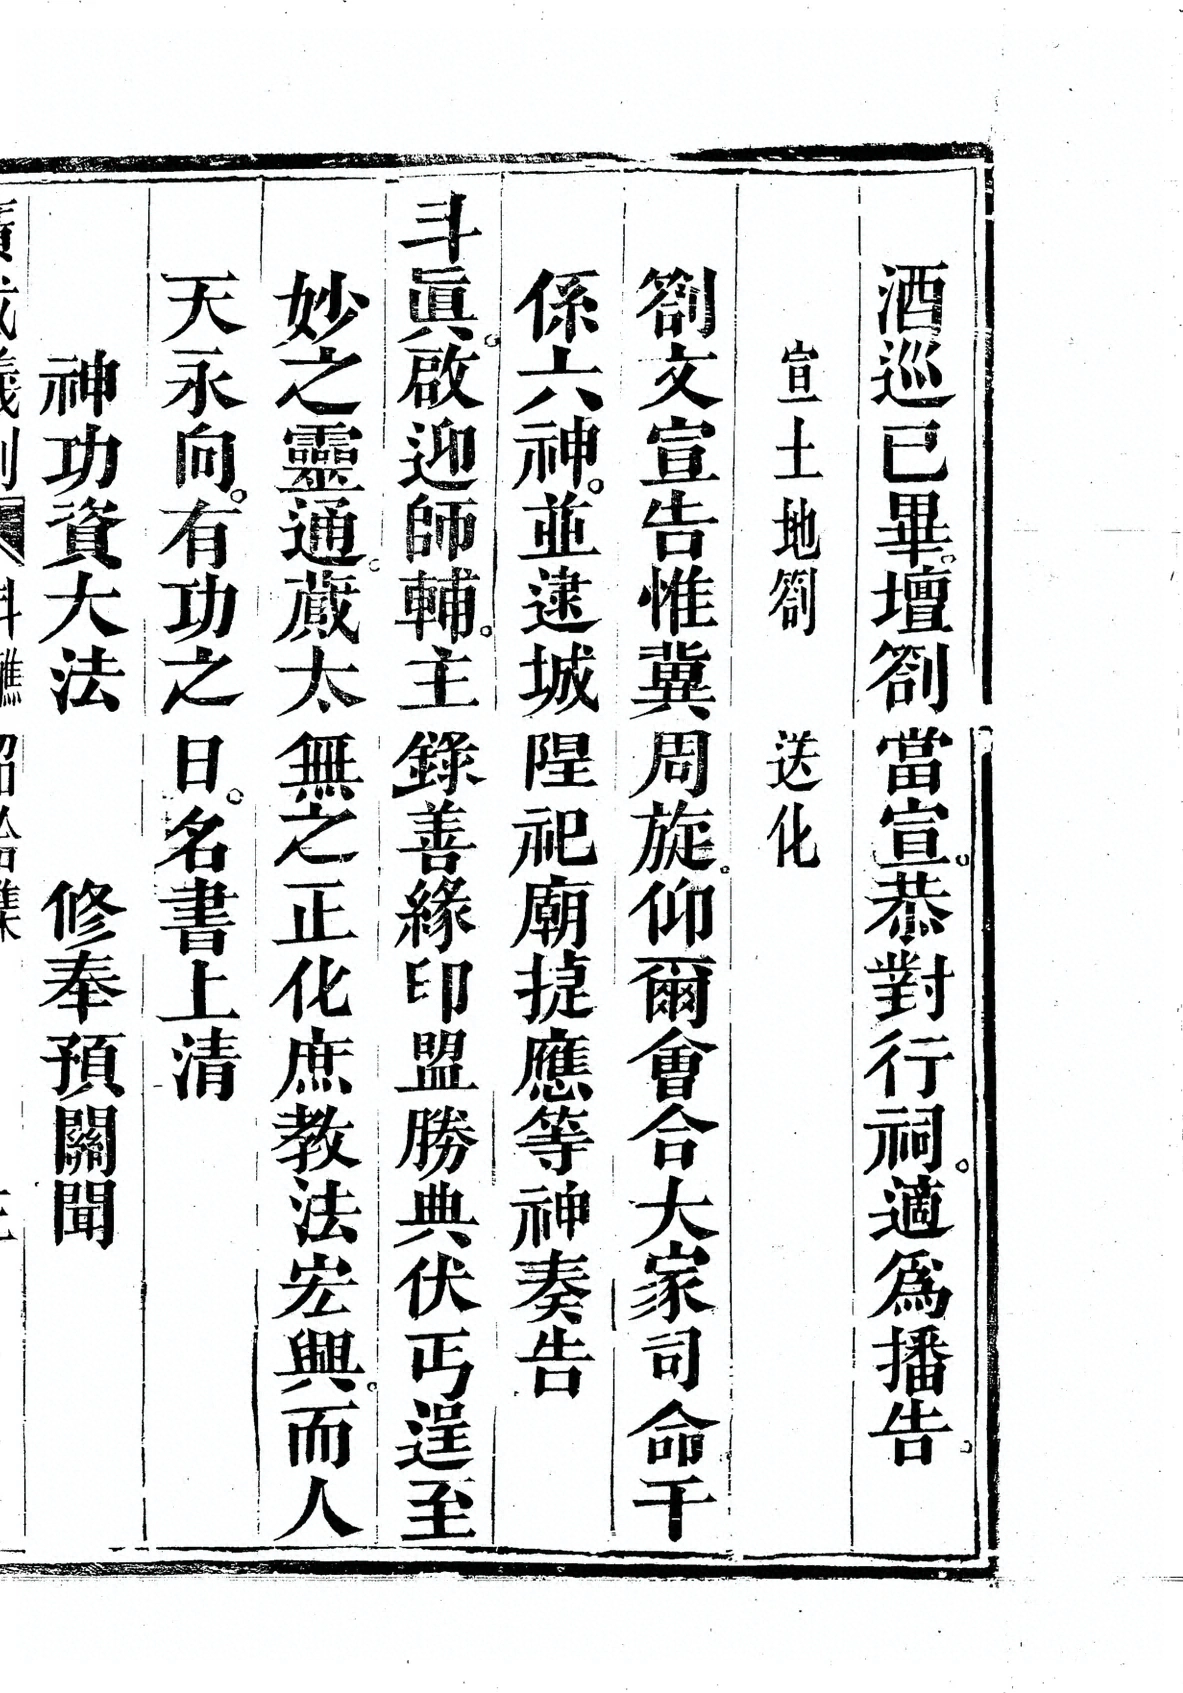 酒巡已畢。壇劄當宣。恭對行祠。適爲播告。
宣土地劄　送化
劄文宣告惟冀周旋。仰爾會合大家司命干
係六神。並逮城隍祀廟㨗應等神奏告
斗眞。啟迎師輔。主錄善緣印盟勝典伏丐逞至
妙之靈通。蕆太無之正化庶教法宏興。而人
天永向。有功之日。名書上清
神功資大法　修奉預關聞